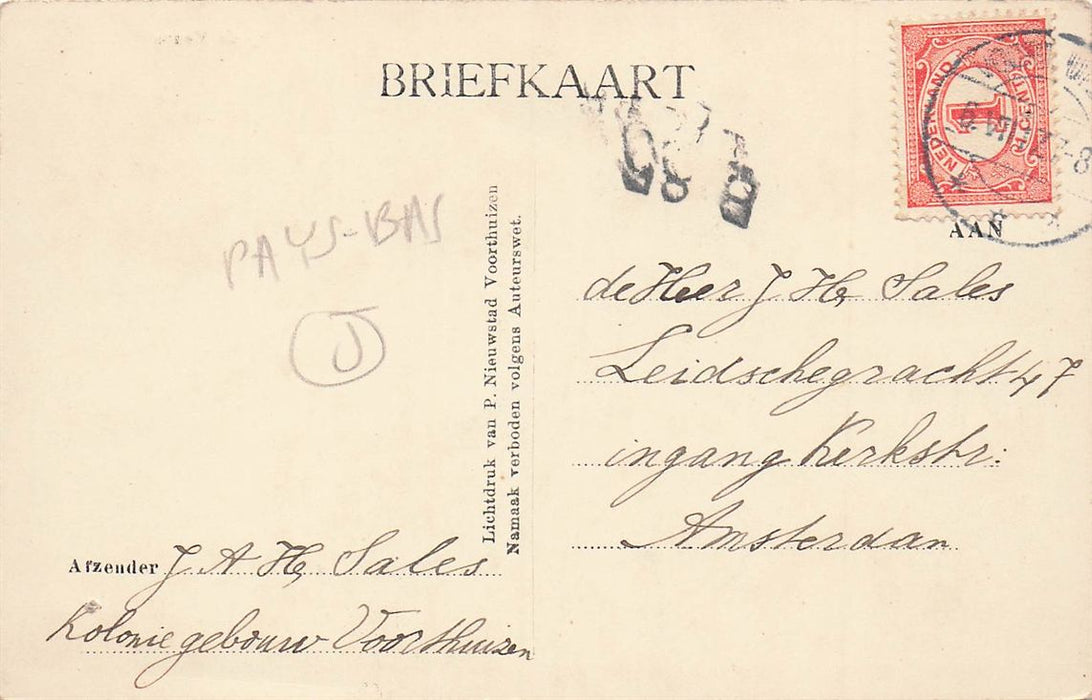 BRIEFKAART
NEDERLAND
1
CENT
PAYS-BAS
J
Lichtdruk van P. Nieuwstad Voorthuizen
Namaak verboden volgens Auteurswet.
AAN
de Heer J H, Sales
Leidschegracht 47
ingang Kerkstr:
Amsterdam
Afzender J A H, Sales
Kolonie gebouw Voorthuizen